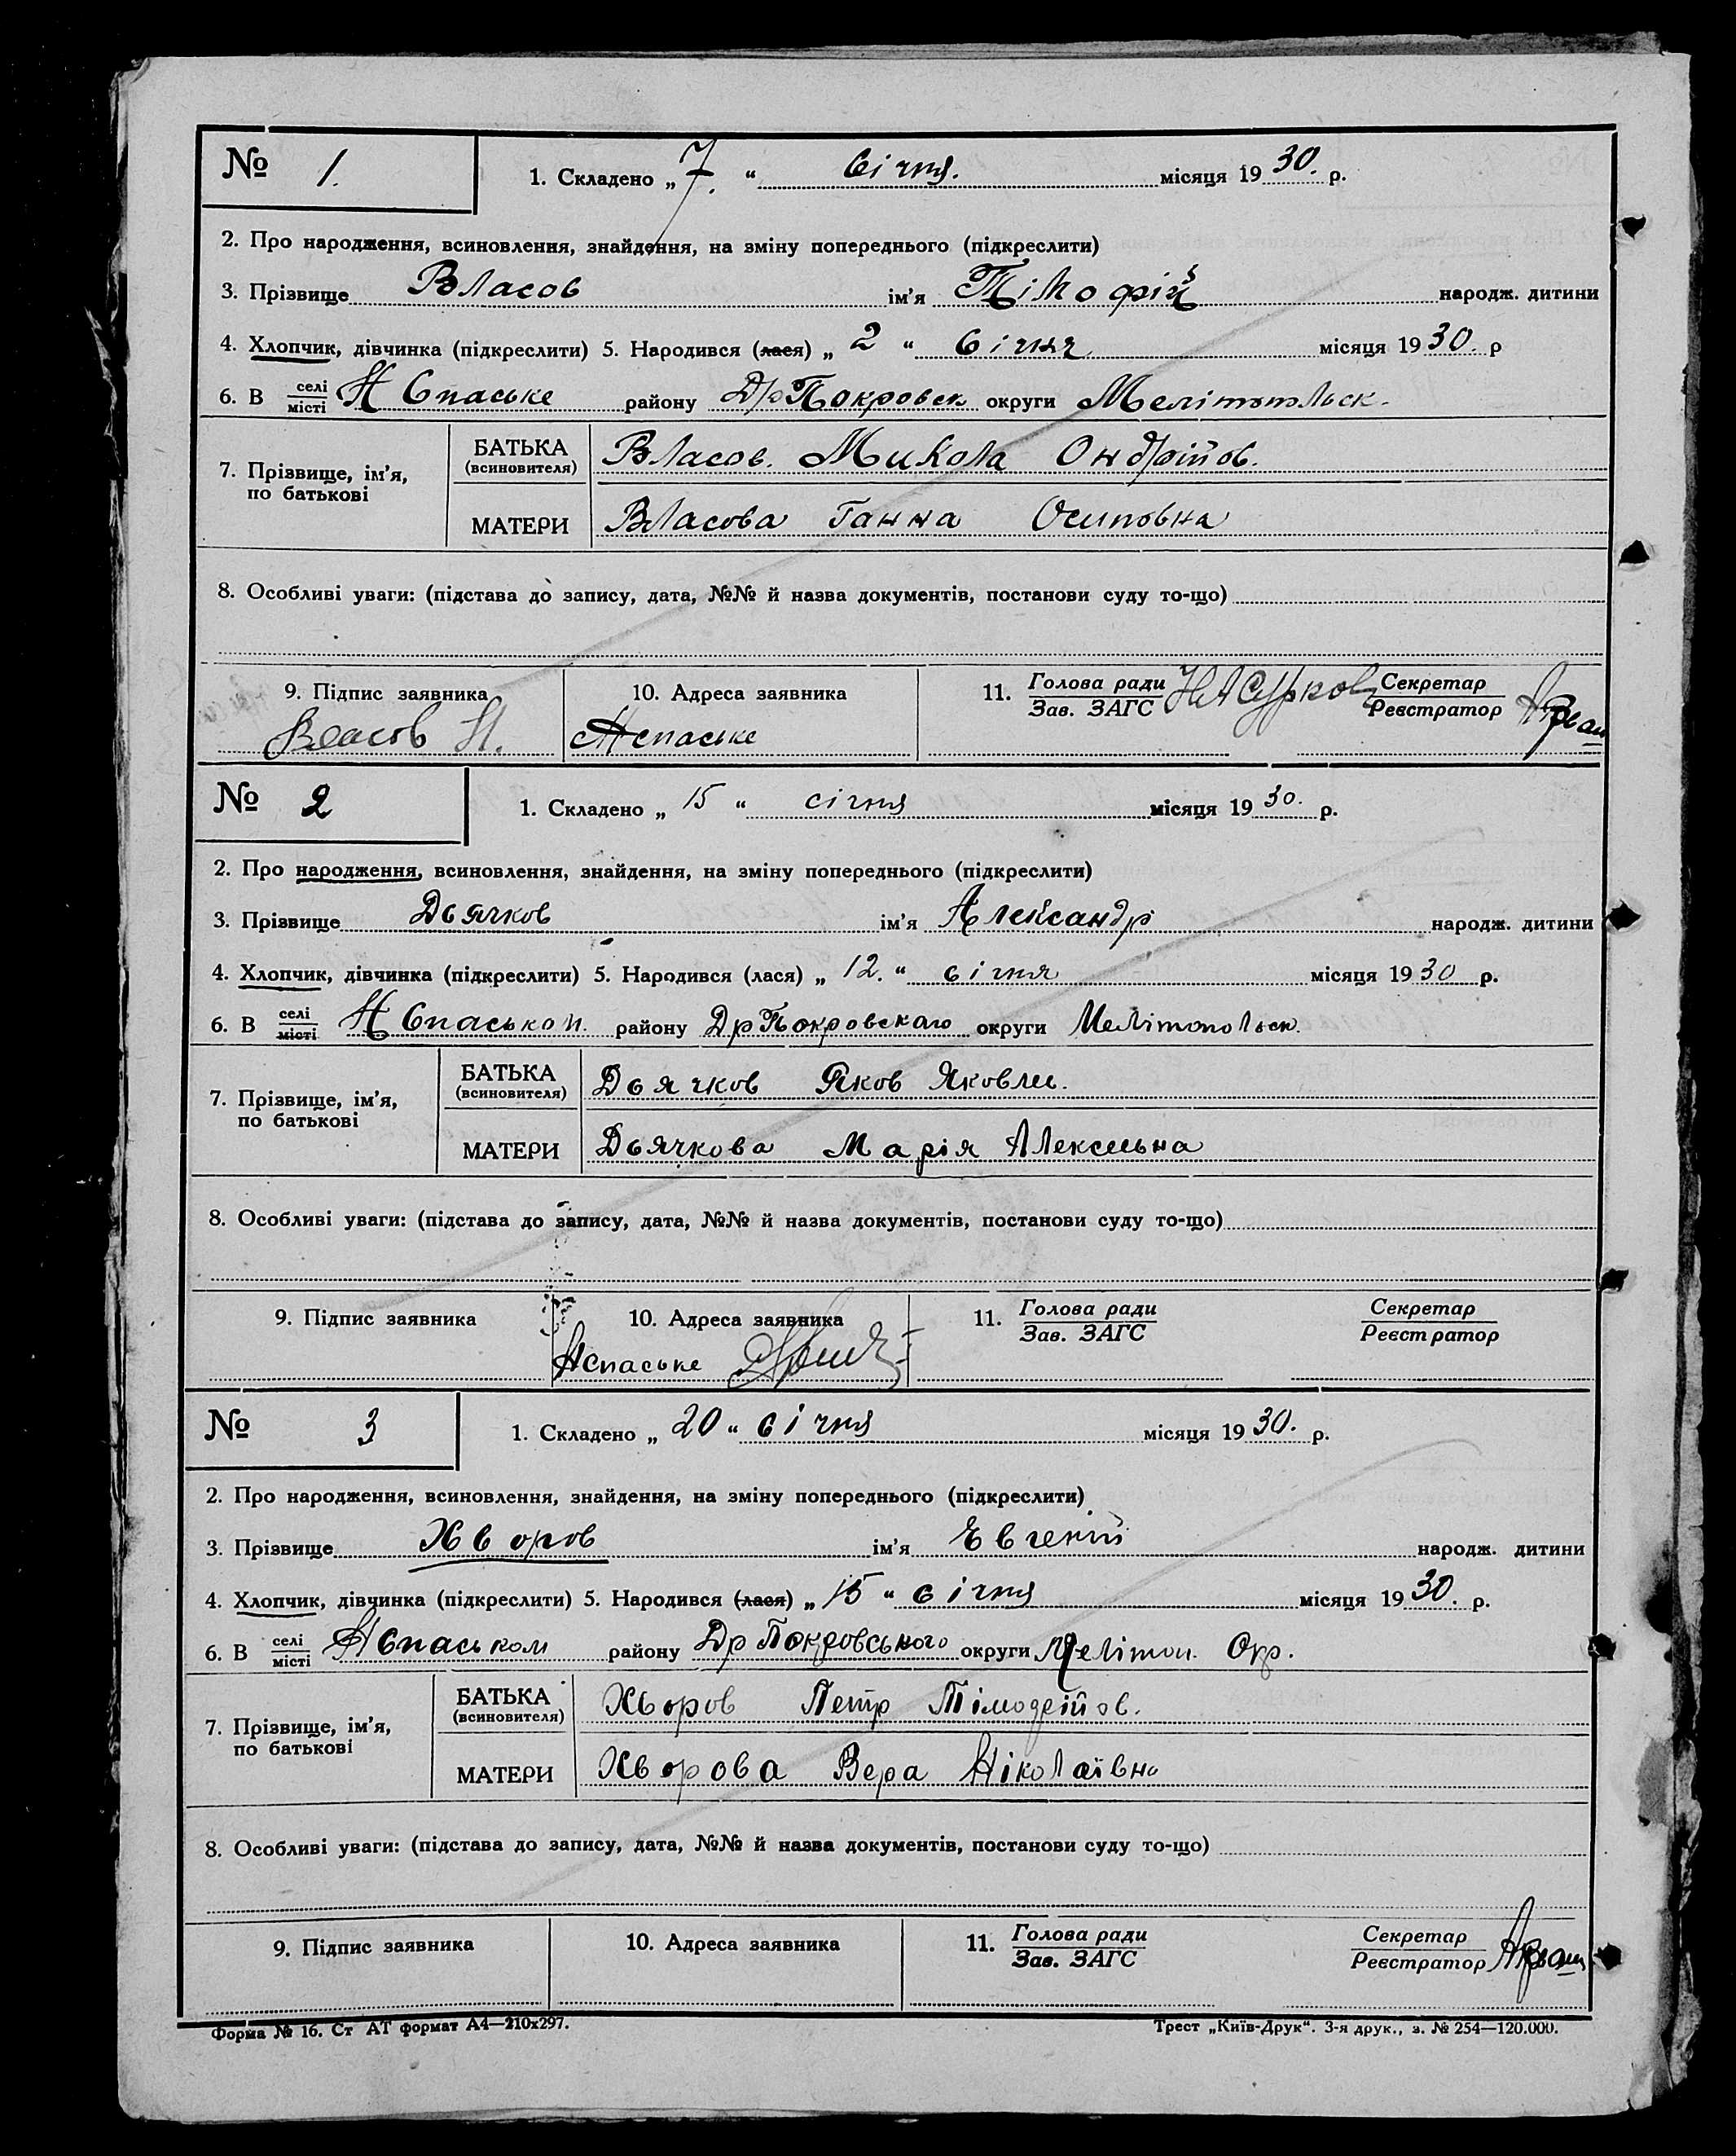 № 1. 1. Складено „7.“ січня. місяця 1930. р.
2. Про народження, всиновлення, знайдення, на зміну попереднього (підкреслити)
3. Прізвище Власов ім'я Тімофій народж. дитини
4. Хлопчик, дівчинка (підкреслити) 5. Народився (лася) „2“ січня місяця 1930. р
6. В селі місті Н Спаське району Др Покровск округи Мелітопольск.
7. Прізвище, ім'я, по батькові
БАТЬКА (всиновителя) Власов. Микола Ондрійов.
МАТЕРИ Власова Ганна Осиповна
8. Особливі уваги: (підстава до запису, дата, №№ й назва документів, постанови суду то-що)
9. Підпис заявника 10. Адреса заявника 11. Голова ради Зав. ЗАГС Секретар Реєстратор
Власов Н. Нспаське
№ 2 1. Складено „15“ січня місяця 1930. р.
2. Про народження, всиновлення, знайдення, на зміну попереднього (підкреслити)
3. Прізвище Дьячков ім'я Александр народж. дитини
4. Хлопчик, дівчинка (підкреслити) 5. Народився (лася) „12.“ січня місяця 1930 р.
6. В селі місті Н Спаськом. району Др Покровскаго округи Мелітопольск.
7. Прізвище, ім'я, по батькові
БАТЬКА (всиновителя) Дьячков Яков Яковл
МАТЕРИ Дьячкова Марія Алексеевна
8. Особливі уваги: (підстава до запису, дата, №№ й назва документів, постанови суду то-що)
9. Підпис заявника 10. Адреса заявника 11. Голова ради Зав. ЗАГС Секретар Реєстратор
Нспаське
№ 3 1. Складено „20“ січня місяця 1930. р.
2. Про народження, всиновлення, знайдення, на зміну попереднього (підкреслити)
3. Прізвище Хворов ім'я Євгеній народж. дитини
4. Хлопчик, дівчинка (підкреслити) 5. Народився (лася) „15“ січня місяця 1930. р.
6. В селі місті Н Спаськом району Др Покровського округи Мелітоп. Окр.
7. Прізвище, ім'я, по батькові
БАТЬКА (всиновителя) Хворов Петр Тімофейов.
МАТЕРИ Хворова Вера Ніколаівна
8. Особливі уваги: (підстава до запису, дата, №№ й назва документів, постанови суду то-що)
9. Підпис заявника 10. Адреса заявника 11. Голова ради Зав. ЗАГС Секретар Реєстратор
Форма № 16. Ст АТ формат А4—210х297. Трест „Київ-Друк“. 3-я друк., з. № 254—120.000.